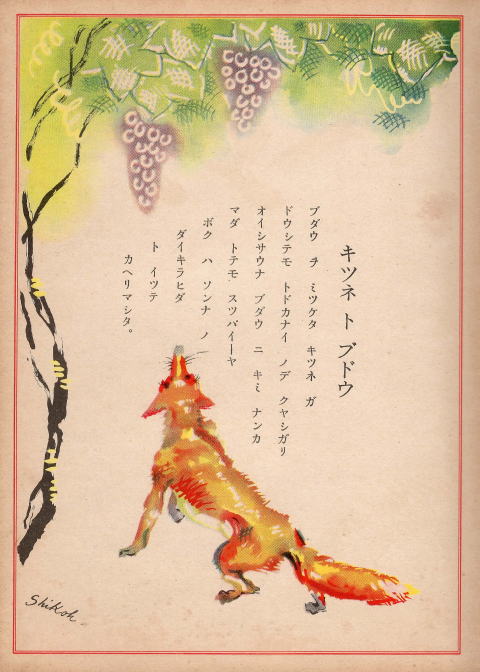 キツネ ト ブドウ
ブダウ ヲ ミツケタ キツネ ガ
ドウシテモ トドカナイ ノデ クヤシガリ
オイシサウナ ブダウ ニ キミ ナンカ
マダ トテモ スツパイーヤ
ボク ハ ソンナ ノ
ダイキラヒダ
ト イツテ
カヘリマシタ。
Shikoh